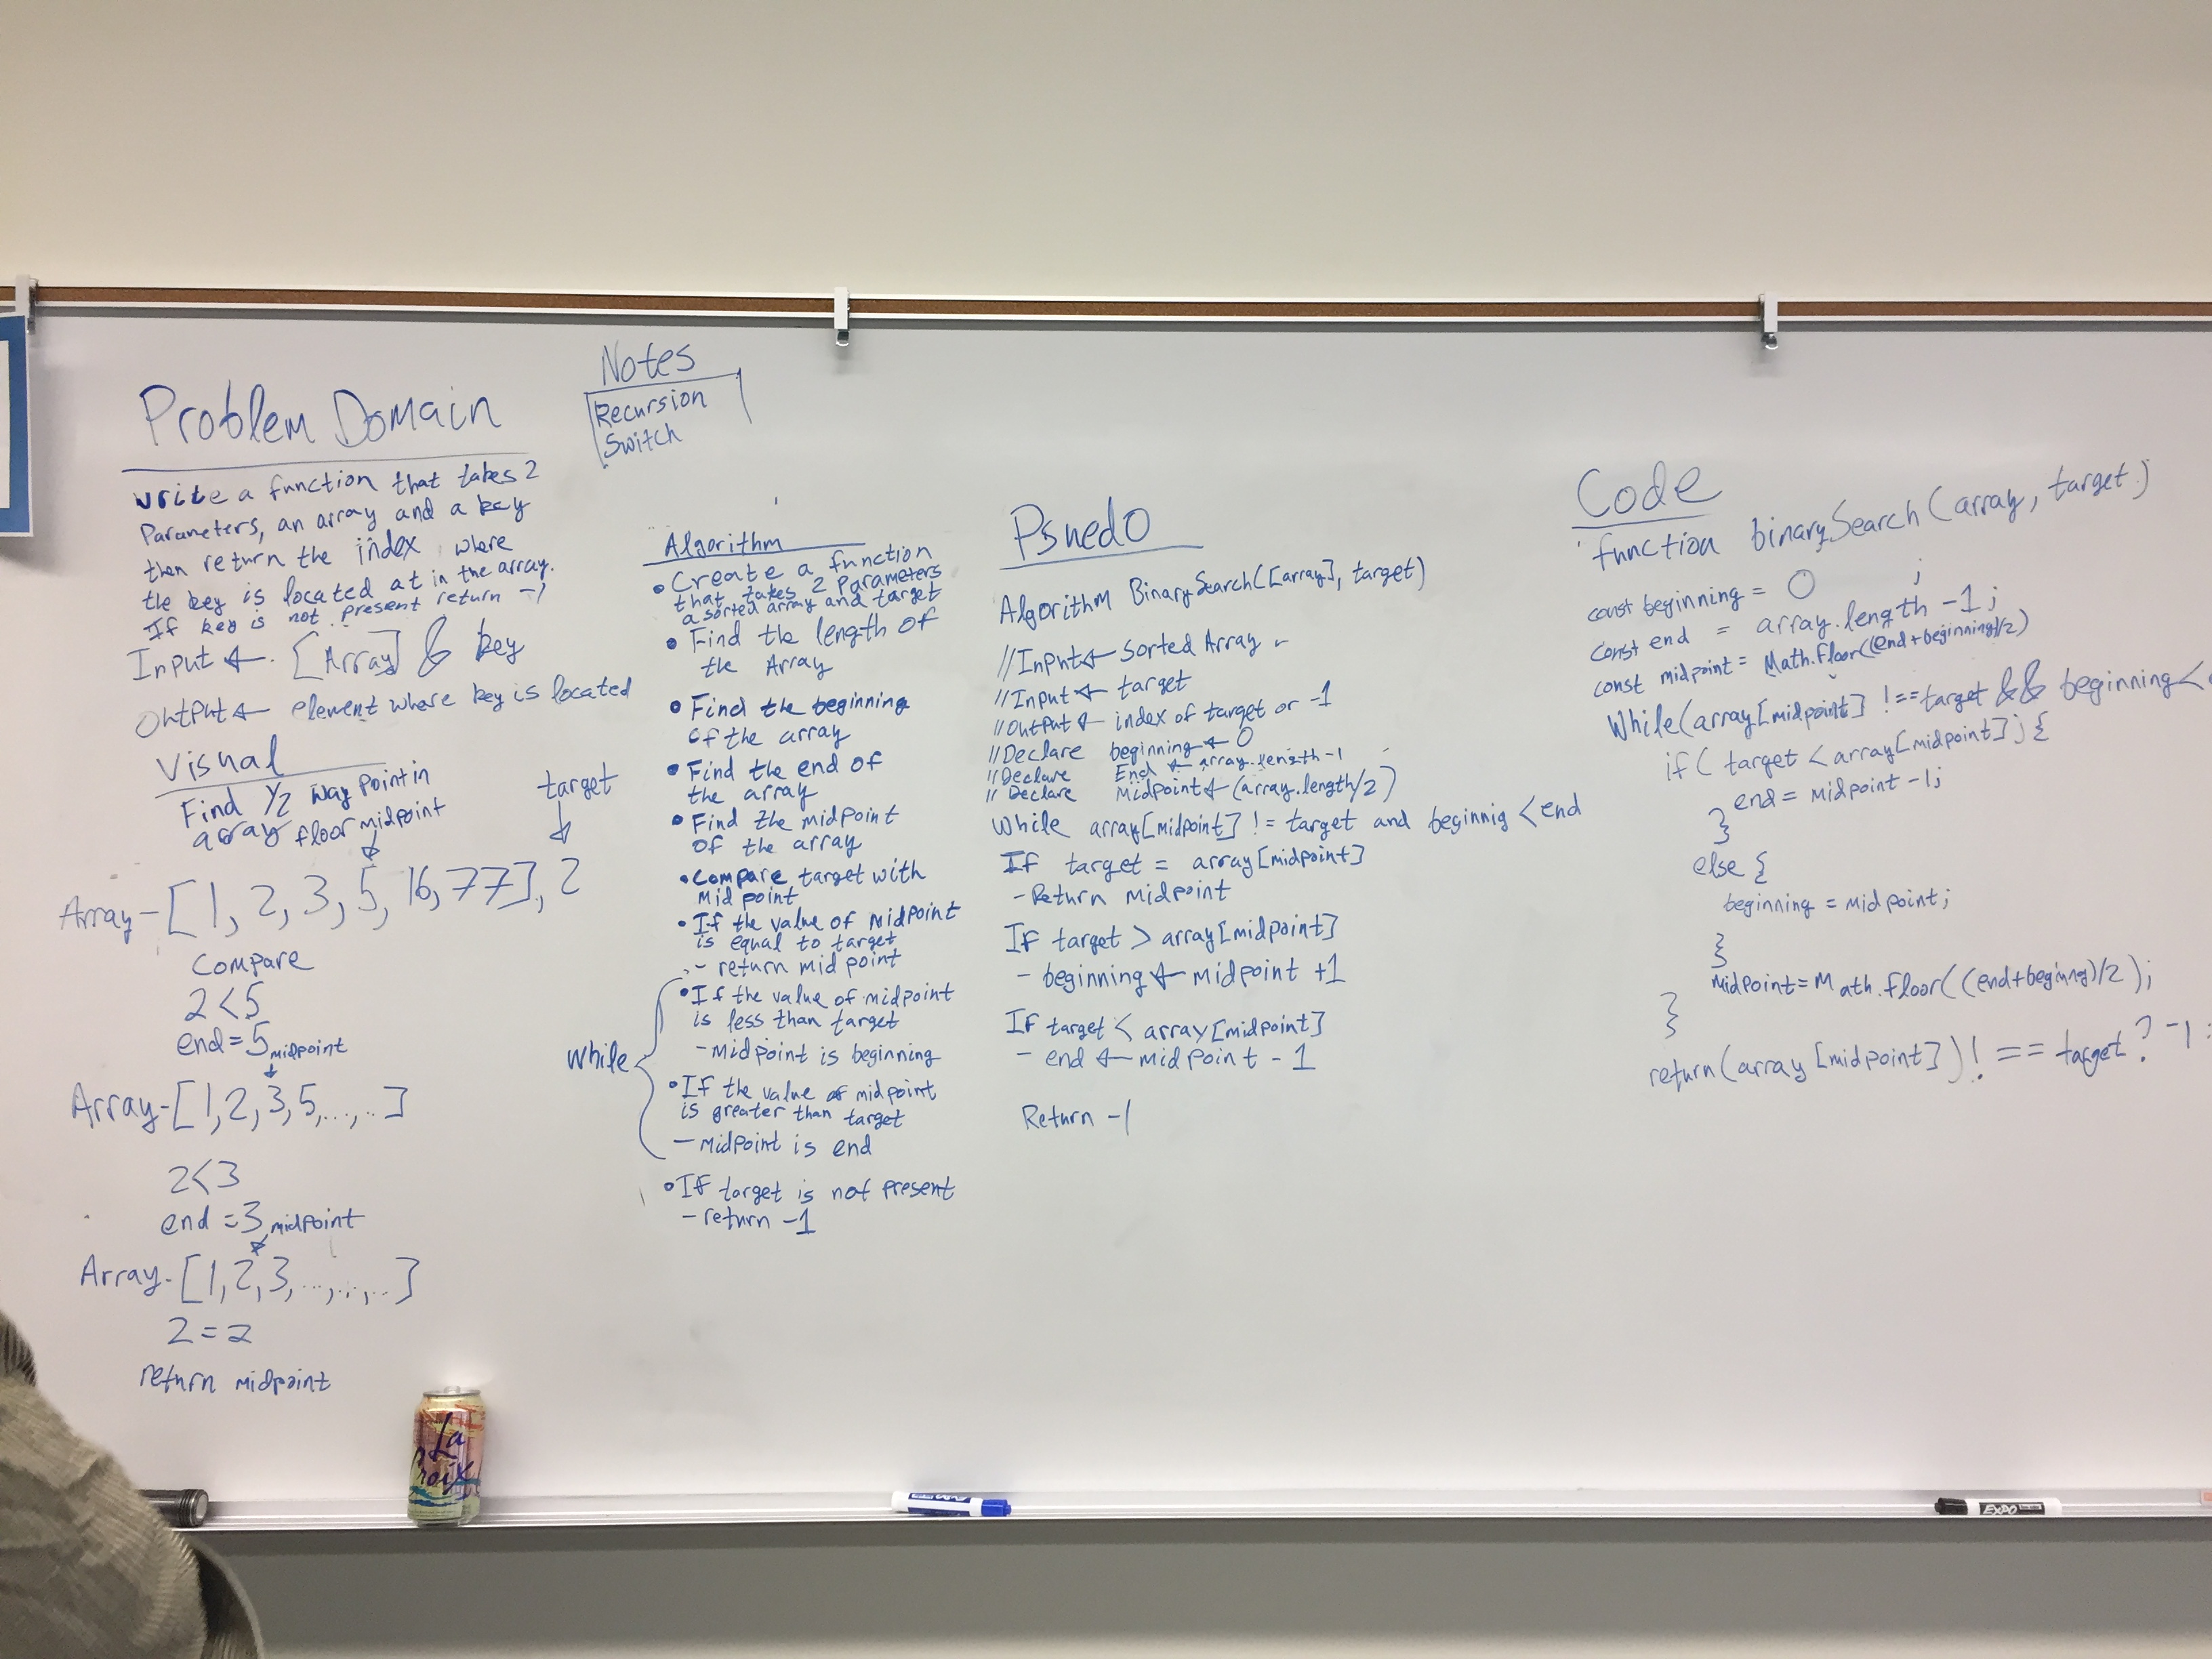 Problem Domain
write a function that takes 2
Parameters, an array and a key
then return the index where
the key is located at in the array.
If key is not present return -1
Input ← [Array] & key
OutPut ← element where key is located
Visual
Find 1/2 way point in
array floor midpoint
target
Array-[1, 2, 3, 5, 16, 77], 2
Compare
2<5
end=5 midpoint
Array-[1,2,3,5,...,..]
2<3
end=3 midpoint
Array-[1,2,3,..,..,..]
2=2
return midpoint
Notes
Recursion
Switch
Algorithm
• Create a function
that takes 2 Parameters
a sorted array and target
• Find the length of
the Array
• Find the beginning
of the array
• Find the end of
the array
• Find the midpoint
of the array
• Compare target with
mid point
• If the value of midpoint
is equal to target
- return mid point
while
• If the value of midpoint
is less than target
- midpoint is beginning
• If the value of midpoint
is greater than target
- midpoint is end
• If target is not present
- return -1
Psuedo
Algorithm BinarySearch([array], target)
//Input ← Sorted Array
//Input ← target
//OutPut ← index of target or -1
//Declare beginning ← 0
//Declare End ← array.length-1
// Declare Midpoint ← (array.length/2)
While array[midpoint] != target and beginnig < end
If target = array[midpoint]
- Return midpoint
If target > array[midpoint]
- beginning ← midpoint +1
If target < array[midpoint]
- end ← midpoint - 1
Return -1
Code
function binarySearch(array, target)
const beginning = 0 ;
const end = array.length -1;
const midpoint = Math.floor((end+beginning)/2)
While(array[midpoint] !== target && beginning <
if( target < array[midpoint]) {
end = midpoint -1;
}
else {
beginning = midpoint;
}
midpoint=Math.floor((end+beginng)/2);
}
return(array[midpoint])! == target? -1 :
La
Croix
EXPO